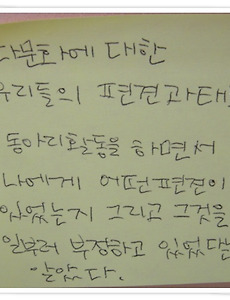 다문화에 대한
우리들의 편견과태
동아리활동을 하면서
나에게 어떤편견이
있었는지 그리고 그것을
일부러 부정하고 있었다는
알았다.